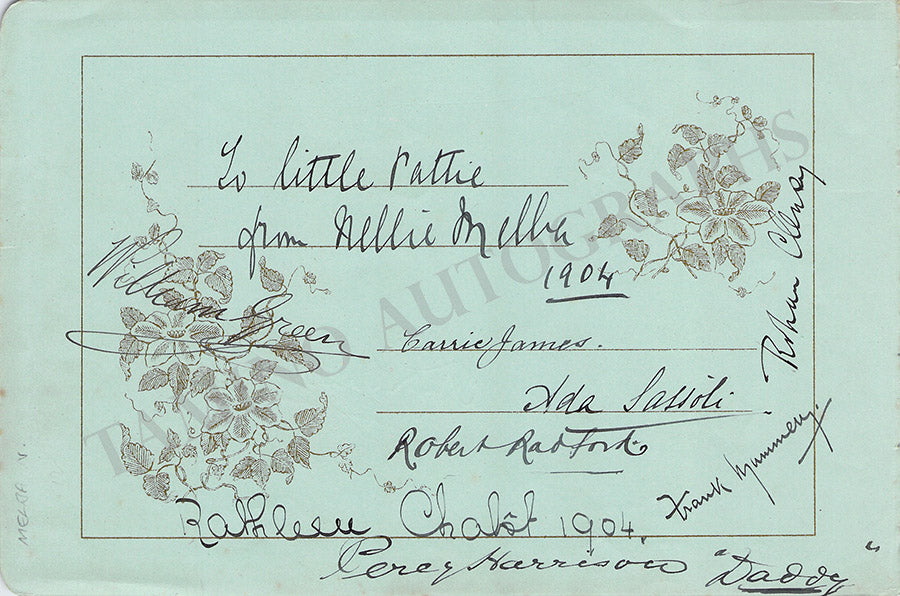 To little Pattie
from Nellie Melba
1904
William Green
Carrie James.
Ada Sassoli
Robert Radford
Kathleen Chabot 1904.
Percy Harrison "Daddy"
Frank Mummery.
Rohan Clensy
TAMINO AUTOGRAPHS
MELBA